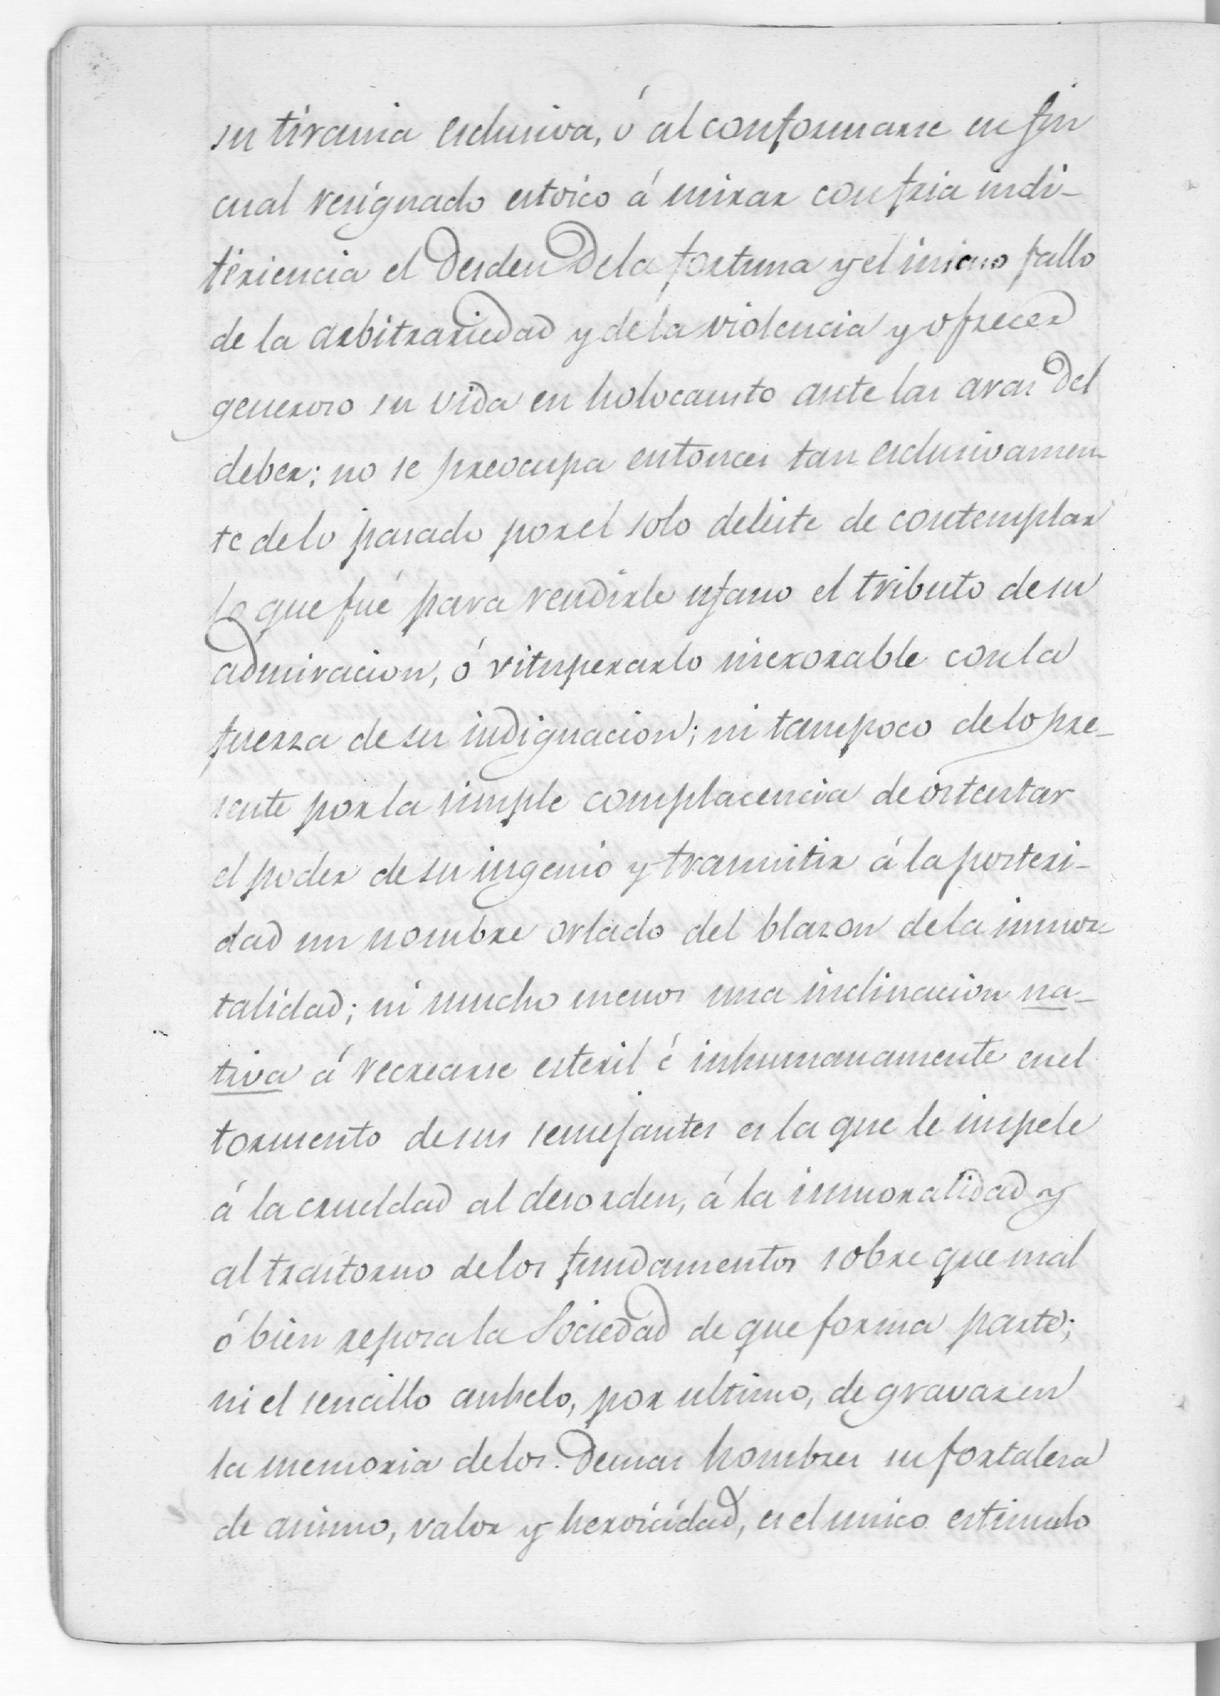 su tirania esclusiva, ó al conformarse en fin
cual resignado estoico á mirar con fria indi-
feriencia el desden de la fortuna y el insano fallo
de la arbitrariedad y de la violencia y ofrecer
generoso su vida en holocausto ante las aras del
deber; no se preocupa entonces tan esclusivamen-
te de lo pasado por el solo deleite de contemplar
lo que fué para rendirle ufano el tributo de su
admiracion, ó vituperarlo inexorable con la
fuerza de su indignacion; ni tampoco de lo pre-
sente por la simple complacencia de ostentar
el poder de su ingenio y trasmitir á la posteri-
dad un nombre orlado del blazon de la inmor-
talidad; ni mucho menos una inclinacion na-
tiva á recrearse esteril é inhumanamente en el
tormento de sus semejantes es la que le impele
á la crueldad al desorden, á la inmoralidad y
al trastorno de los fundamentos sobre que mal
ó bien reposa la Sociedad de que forma parte;
ni el sencillo anhelo, por ultimo, de gravar en
la memoria de los demas hombres su fortalesa
de animo, valor y heroicidad, es el unico estimulo